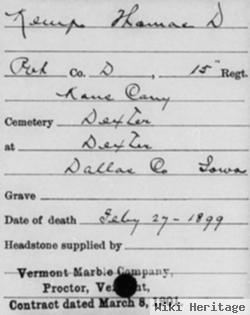 Kemp Thomas D
Pvt Co. D, 15" Regt.
Kans Cavy
Cemetery Dexter
at Dexter
Dallas Co Iowa
Grave
Date of death Feby 27-1899
Headstone supplied by
Vermont Marble Company,
Proctor, Vermont,
Contract dated March 8, 1901
Wiki Heritage